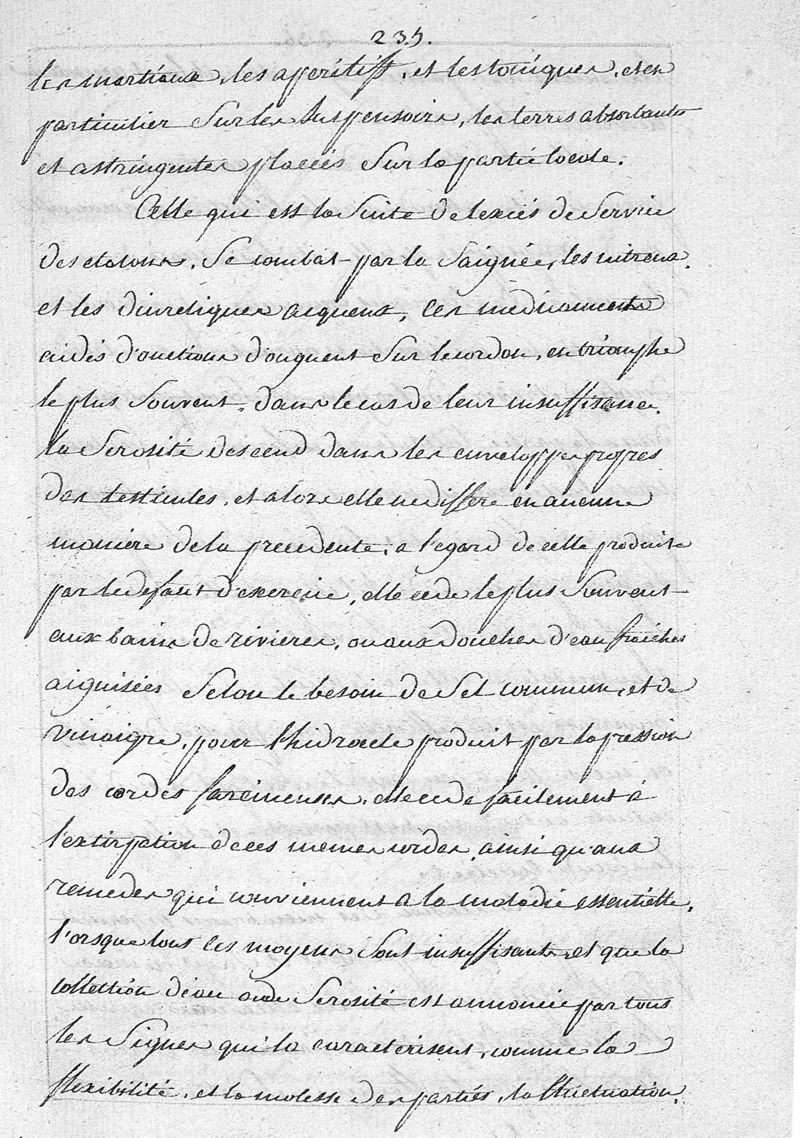 235.
les martiaux, les aperitifs, et les toniques, et en
particulier sur les suspensoirs, les terres absorbants
et astringentes placés sur la partie locale.
Celle qui est la suite de lexcés de service
des etalons, se combat par la saignée, les nitreux,
et les diuretiques aiqueux, ces medicaments
aidés d'onctions d'onguent sur le cordon, en triomphe
le plus souvent, dans le cas de leur insuffisance,
la serosité descend dans les enveloppes propres
des testicules, et alors elle ne differe en aucune
maniere de la precedente; a l'egard de celle produite
par le defaut d'exercice, elle cede le plus souvent
aux bains de rivieres, ou aux douches d'eau fraiches
aiguisées selon le besoin de sel commun, et de
vinaigre, pour l'hidrocele produit par la pression
des cordes farcineuses, elle cede facilement à
l'extirpation de ces memes cordes, ainsi qu'aux
remedes qui conviennent a la maladie essentielle,
l'orsque tous ces moyens sont insuffisants, et que la
collection de serosité est annoncée par tous
les signes qui la caracterisent, comme la
flexibilité, et la molesse des parties, la fluctuation,